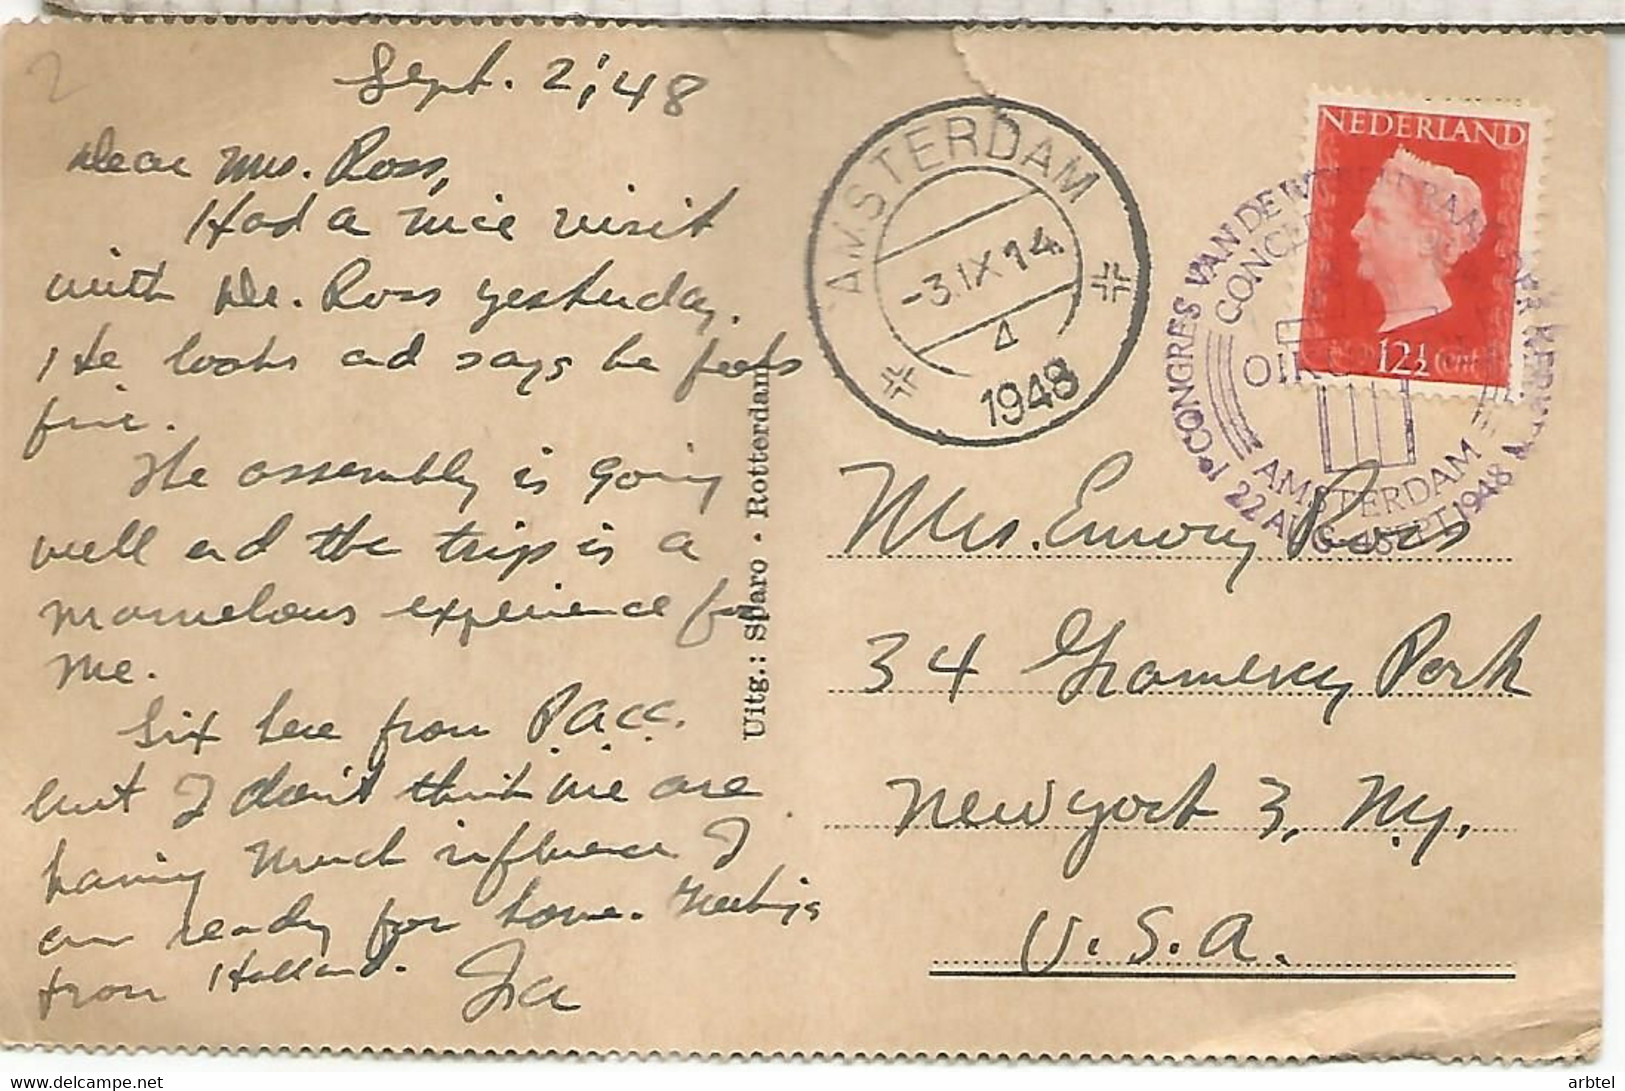 2
Sept. 2, '48
Dear Mrs. Ross,
Had a nice visit
with Dr. Ross yesterday.
He looks and says he feels
fine.
The assembly is going
well and the trip is a
marvelous experience for
me.
Six here from P.A.C.C.
but I don't think we are
having much influence I
am ready for home. Greetings
from Holland.
Ira
Uitg.: Sparo · Rotterdam
AMSTERDAM
-3.IX 14
4
1948
NEDERLAND
12½ Cent
1e CONGRES VAN DE RAAD DER KERKEN
CONCE
OIKO
AMSTERDAM
22 AUG. 4 SEPT. 1948
Mrs. Emory Ross
34 Gramercy Park
New York 3, N.Y.
U.S.A.
arbtel